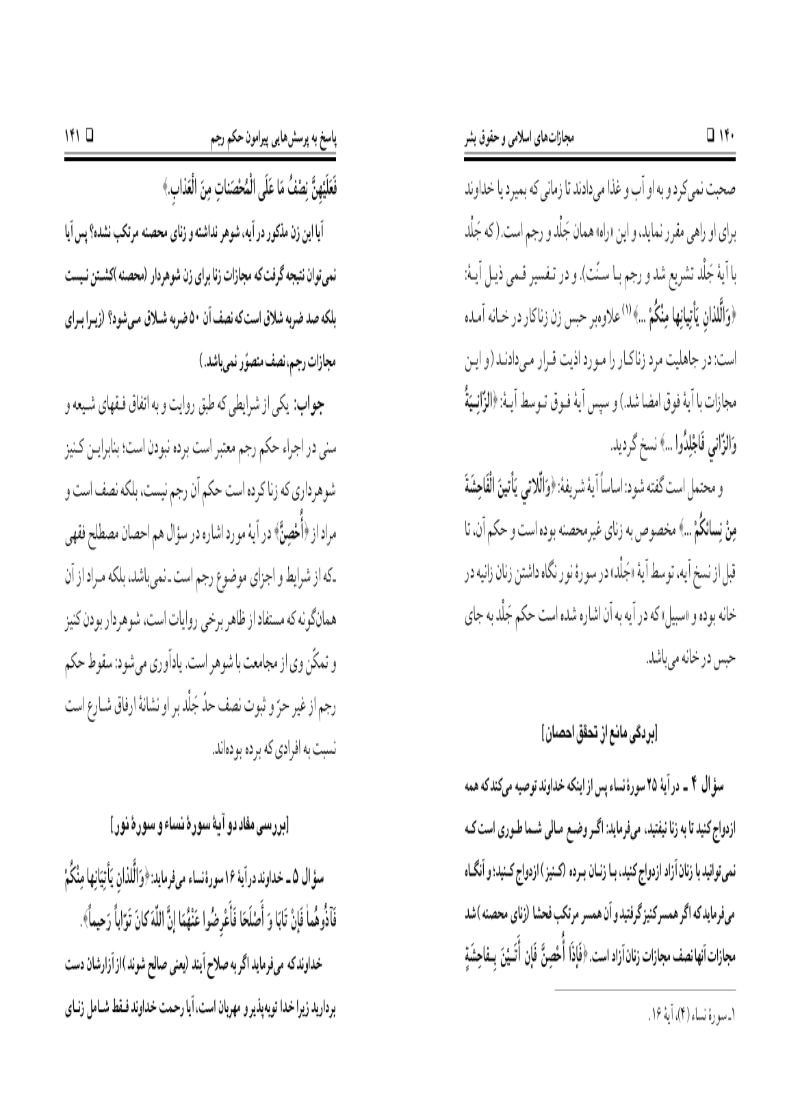 ۱۴۰ ❑ مجازات‌های اسلامی و حقوق بشر
صحبت نمی‌کرد و به او آب و غذا می‌دادند تا زمانی که بمیرد یا خداوند
برای او راهی مقرر نماید، و این «راه» همان جَلْد و رجم است.( که جَلْد
با آیهٔ جَلْد تشریع شد و رجم بـا سـنّت). و در تـفسیر قـمی ذیـل آیـهٔ:
﴿وَالَّلذانِ يَأْتِيانِها مِنْكُمْ ...﴾(۱) علاوه‌بر حبس زن زناکار در خـانه آمـده
است: در جاهلیت مرد زناکـار را مـورد اذیت قـرار مـی‌دادنـد (و ایـن
مجازات با آیهٔ فوق امضا شد.) و سپس آیهٔ فـوق تـوسط آیـهٔ: ﴿الزّانِـيَةُ
وَالزّاني فَاجْلِدُوا ...﴾ نسخ گردید.
و محتمل است گفته شود: اساساً آیهٔ شریفهٔ: ﴿وَالّلاتي يَأتينَ الْفَاحِشَةَ
مِنْ نِسائكُمْ ...﴾ مخصوص به زنای غیرمحصنه بوده است و حکم آن، تا
قبل از نسخ آیه، توسط آیهٔ «جَلْد» در سورهٔ نور نگاه داشتن زنان زانیه در
خانه بوده و «سبیل» که در آیه به آن اشاره شده است حکم جَلْد به جای
حبس در خانه می‌باشد.
[بردگی مانع از تحقق احصان]
سؤال ۴ ـ در آیهٔ ۲۵ سورهٔ نساء پس از اینکه خداوند توصیه می‌کند که همه
ازدواج کنید تا به زنا نیفتید، می‌فرماید: اگـر وضـع مـالی شـما طـوری است کـه
نمی‌توانید با زنان آزاد ازدواج کنید، بـا زنـان بـرده (کـنیز) ازدواج کـنید؛ و آنگـاه
می‌فرماید که اگر همسر کنیز گرفتید و آن همسر مرتکب فحشا (زنای محصنه) شد
مجازات آنها نصف مجازات زنان آزاد است. ﴿فَإذٰا أُحْصِنَّ فَإن أتَـيْنَ بِـفاحِشَةٍ
۱ـ سورهٔ نساء (۴)، آیهٔ ۱۶.
پاسخ به پرسش‌هایی پیرامون حکم رجم ❑ ۱۴۱
فَعَلَيْهِنَّ نِصْفُ مَا عَلَى الْمُحْصَناتِ مِنَ الْعَذابِ.﴾
آیا این زن مذکور در آیه، شوهر نداشته و زنای محصنه مرتکب نشده؟ پس آیا
نمی‌توان نتیجه گرفت که مجازات زنا برای زن شوهردار (محصنه )کشتـن نیـست
بلکه صد ضربه شلاق است که نصف آن ۵۰ ضربه شـلاق مـی‌شود؟ (زیـرا بـرای
مجازات رجم، نصف متصوّر نمی‌باشد. )
جواب: یکی از شرایطی که طبق روایت و به اتفاق فـقهای شـیعه و
سنی در اجراء حکم رجم معتبر است برده نبودن است؛ بنابرایـن کـنیز
شوهرداری که زنا کرده است حکم آن رجم نیست، بلکه نصف است و
مراد از ﴿أُحْصِنَّ﴾ در آیهٔ مورد اشاره در سؤال هم احصان مصطلح فقهی
ـ که از شرایط و اجزای موضوع رجم است ـ نمی‌باشد، بلکه مـراد از آن
همان‌گونه که مستفاد از ظاهر برخی روایات است، شوهردار بودن کنیز
و تمکّن وی از مجامعت با شوهر است. یادآوری می‌شود: سقوط حکم
رجم از غیر حرّ و ثبوت نصف حدّ جَلْد بر او نشانهٔ ارفاق شـارع است
نسبت به افرادی که برده بوده‌اند.
[بررسی مفاد دو آیهٔ سورهٔ نساء و سورهٔ نور]
سؤال ۵ ـ خداوند در آیهٔ ۱۶ سورهٔ نساء می‌فرماید: ﴿وَالَّلذانِ يَأتِيَانِها مِنْكُمْ
فَآذُوهُمٰا فَإنْ تٰابَا وَ أَصْلَحَا فَأَعْرِضُوا عَنْهُمَا إنَّ اللّهَ كانَ تَوّاباً رَحيماً﴾.
خداوند که می‌فرماید اگر به صلاح آیند (یعنی صالح شوند )از آزارشان دست
بردارید زیرا خدا توبه‌پذیر و مهربان است، آیا رحمت خداوند فـقط شـامل زنـای